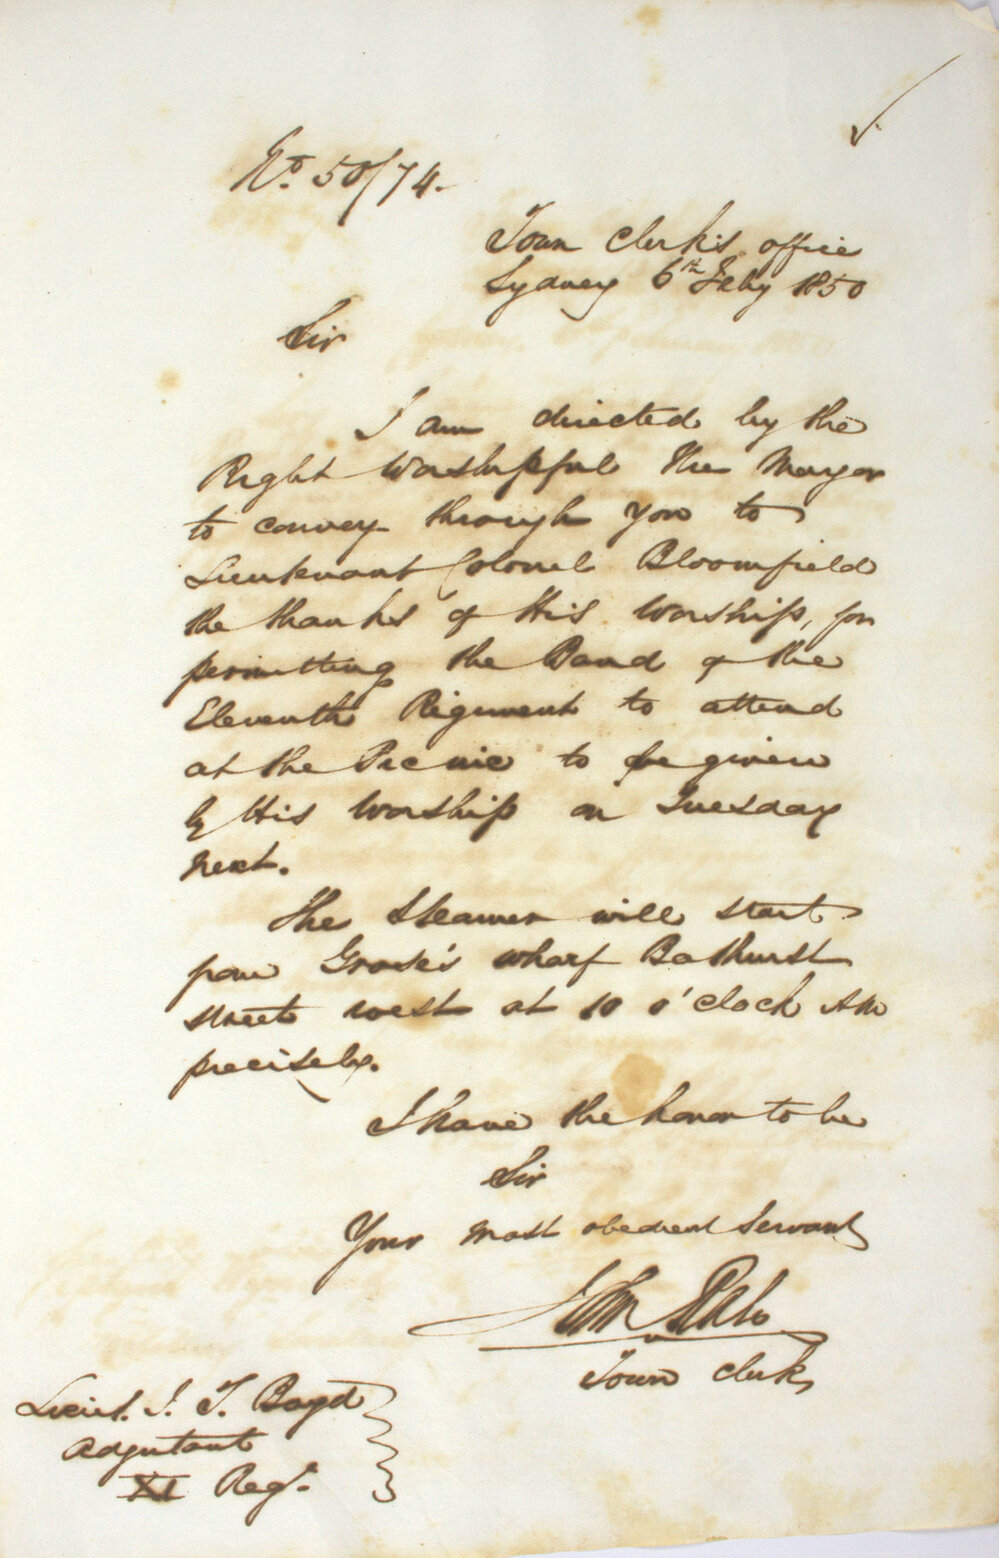 No. 50/74.
Town Clerk's office
Sydney 6th Feby 1850
Sir
I am directed by the
Right Worshipful the Mayor
to convey through you to
Lieutenant Colonel Bloomfield
the thanks of His Worship, for
permitting the Band of the
Eleventh Regiment to attend
at the Pic nic to be given
by His Worship on Tuesday
next.
The Steamer will start
from Grose's wharf Bathurst
street west at 10 o'clock AM
precisely.
I have the honor to be
Sir
Your most obedient Servant
John
Town Clerk
Lieut. J. T. Boyd
Adjutant
XI Regt.